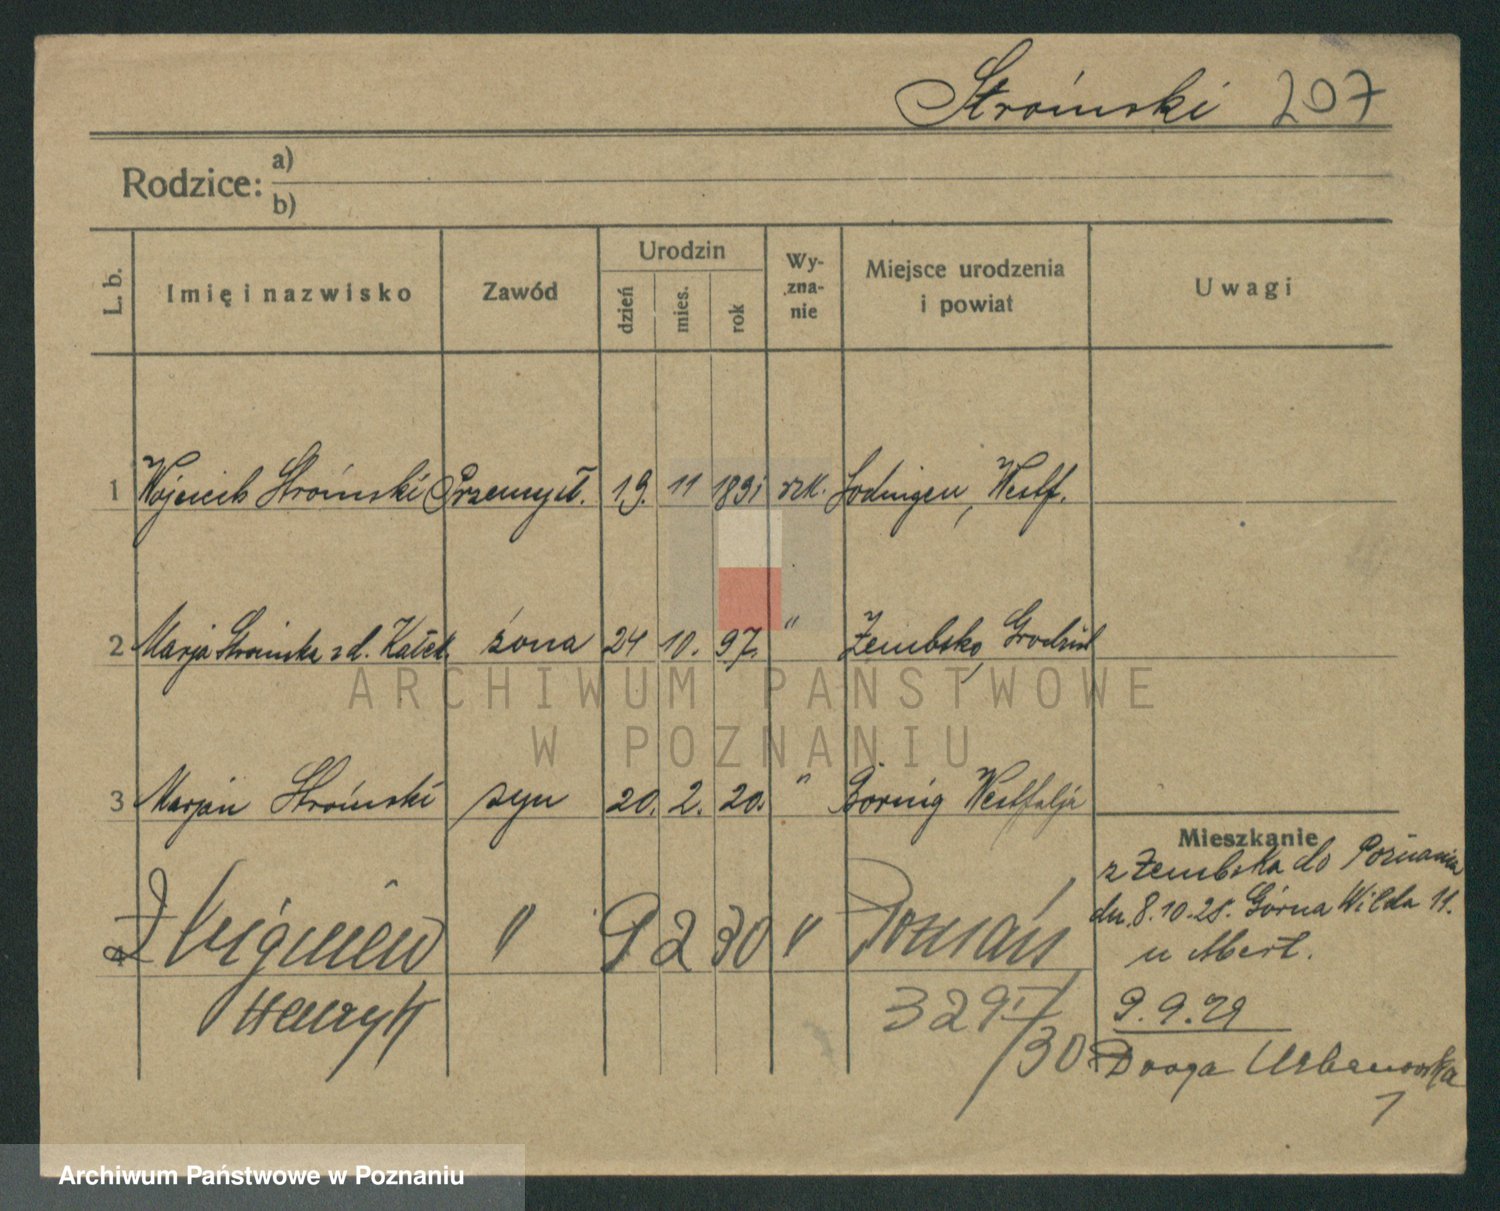 Stroiński 207
Rodzice: a)
b)
L. b. Imię i nazwisko Zawód Urodzin dzień mies. rok Wy-zna-nie Miejsce urodzenia i powiat Uwagi
1 Wojciech Stroiński Przemysł. 19. 11 1891 rzk. Lodingen, Westf.
2 Marja Stroińska z d. Kałek żona 24 10. 97. " Zembsko, Grodzisk
3 Marjan Stroiński syn 20. 2. 20. " Börnig Westfalja
Mieszkanie
z Zembska do Poznania
dn. 8.10.25. Górna Wilda 11.
u Abert.
4 Zbigniew " 9 2 30 " Poznań
Henryk 329 I/30
9.9.29
Droga Urbanowska
1
ARCHIWUM PAŃSTWOWE
W POZNANIU
Archiwum Państwowe w Poznaniu